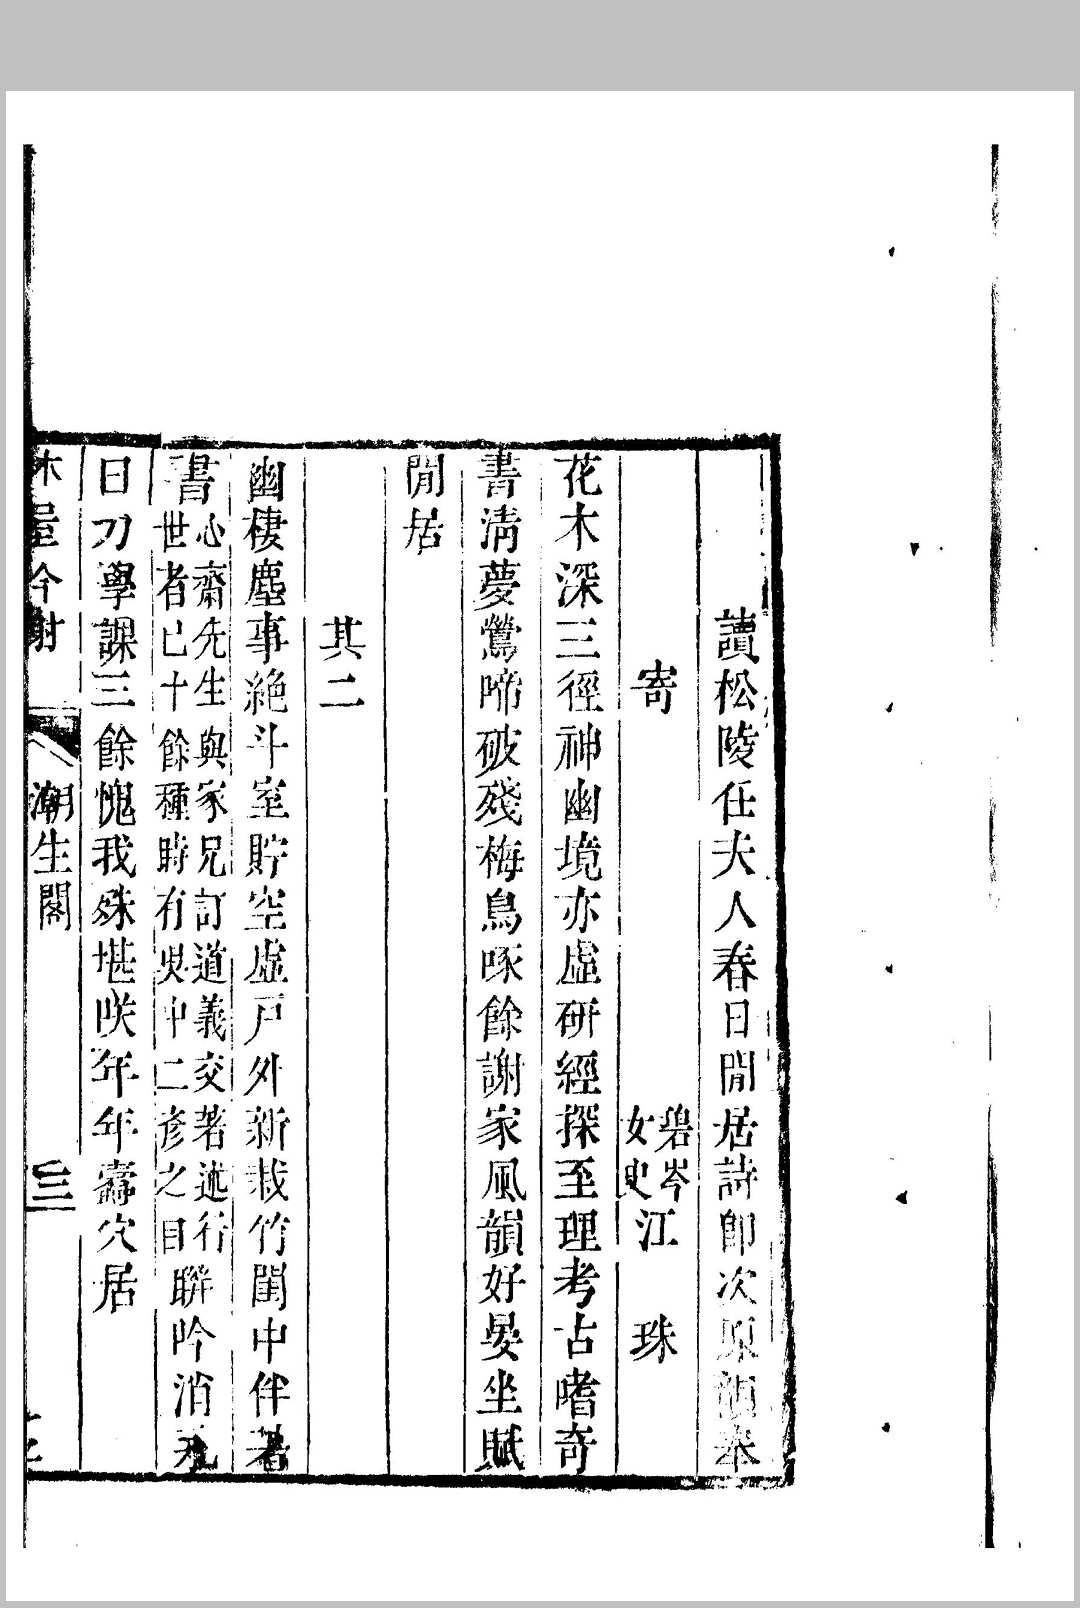 讀松陵任夫人春日閒居詩即次原韻奉
寄　碧岑女史江　珠
花木深三徑神幽境亦虛研經探至理考古嗜奇
書清夢鶯啼破殘梅鳥啄餘謝家風韻好晏坐賦
閒居
其二
幽棲塵事絶斗室貯空虛戸外新栽竹閨中伴著
書心齋先生與家兄訂道義交著述行世者已十餘種時有吳中二彥之目聯吟消
日刀學課三餘愧我殊堪咲年年壽穴居
潮生閣
三